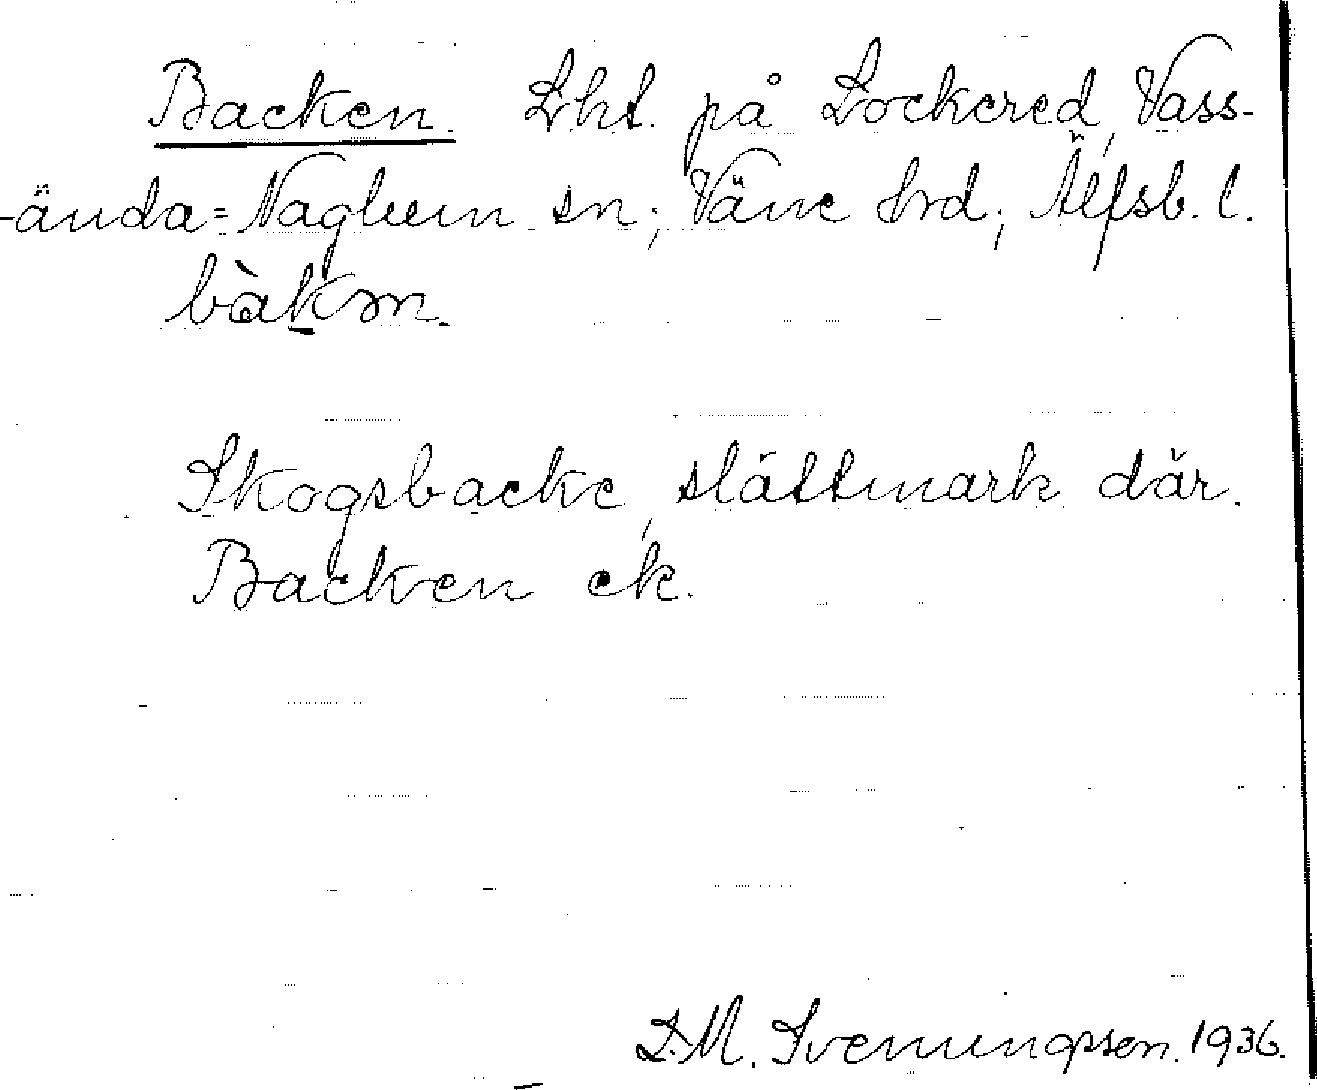 Backen. Lht. på Lockered, Vass-
-ända=Naglum sn; Väne hrd; Älfsb. l.
bàkm.
Skogsbacke, slättmark där.
Backen ek.
D.M. Svenungsson. 1936.